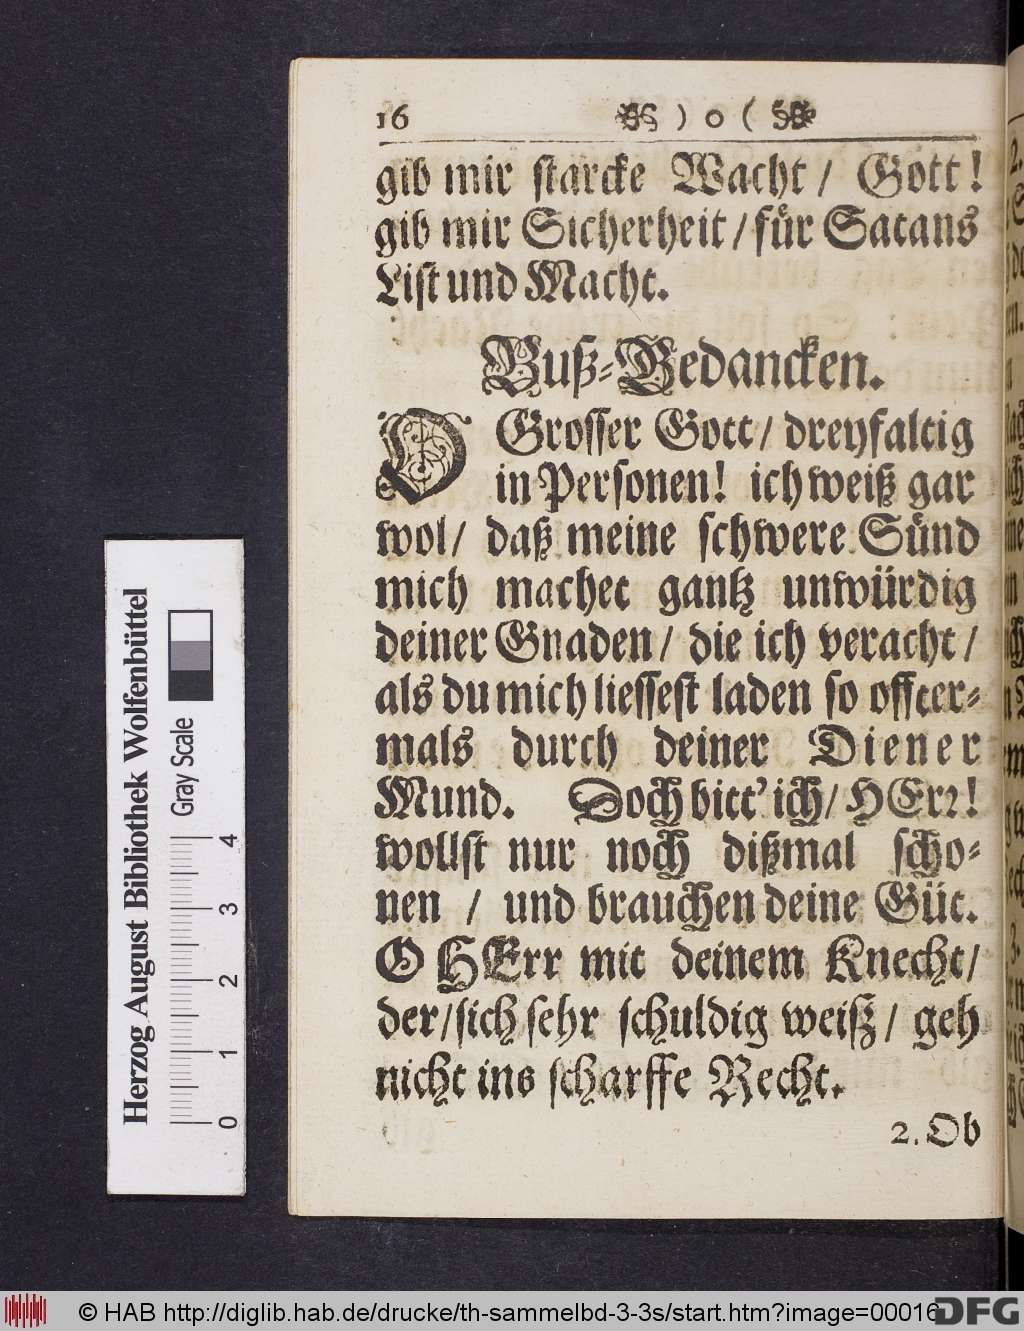 16 ) o (
gib mir starcke Wacht / Gott!
gib mir Sicherheit / für Satans
List und Macht.
Buß-Gedancken.
O Grosser Gott / dreyfaltig
in Personen! ich weiß gar
wol / daß meine schwere Sünd
mich machet gantz unwürdig
deiner Gnaden / die ich veracht /
als du mich liessest laden so offter-
mals durch deiner Diener
Mund. Doch bitt' ich / HErr!
wollst nur noch dißmal scho-
nen / und brauchen deine Güt.
O HErr mit deinem Knecht /
der / sich sehr schuldig weiß / geh
nicht ins scharffe Recht.
2. Ob
Herzog August Bibliothek Wolfenbüttel
Gray Scale
0 1 2 3 4
© HAB http://diglib.hab.de/drucke/th-sammelbd-3-3s/start.htm?image=00016
DFG